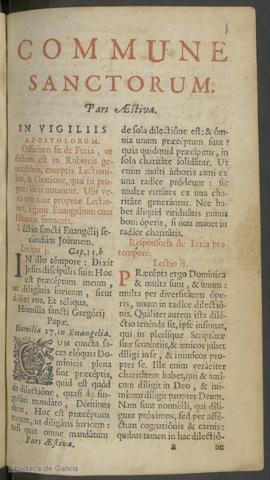 COMMUNE
SANCTORUM.
Pars Æstiva.
IN VIGILIIS
APOSTOLORUM.
Officium fit de Feria, ut
dictum est in Rubricis ge-
neralibus, exceptis Lectioni-
bus, & Oratione, quæ in pro-
priis locis notantur. Ubi ve-
rò non sunt propriæ Lectio-
nes, legitur Evangelium cum
Homilia sequenti.
Lectio sancti Euangelij se-
cundùm Joannem.
Lectio j. Cap. 15. b
IN illo témpore: Dixit
Jesus discípulis suis: Hoc
est præcéptum meum,
ut diligátis ínvicem, sicut
diléxi vos. Et réliqua.
Homilía sancti Gregórij
Papæ.
Homilia 27. in Euangelia.
CUm cuncta sa-
cra elóquia Do-
mínicis plena
sint præcéptis,
quid est quòd
de dilectióne, quasi de sin-
gulári mandáto, Dóminus
dicit, Hoc est præcéptum
meum, ut diligátis ínvicem:
nisi quia omne mandátum
Pars Æstiva.
de sola dilectióne est: & óm-
nia unum præcéptum sunt?
quia quidquid præcípitur, in
sola charitáte solidátur. Ut
enim multi árboris rami ex
una radíce pródeunt: sic
multæ virtútes ex una cha-
ritáte generántur. Nec ha-
bet áliquid viriditátis ramus
boni óperis, si non manet in
radíce charitátis.
Responsoria de Feria pro
tempore.
Lectio ij.
PRæcépta ergo Domínica
& multa sunt, & unum:
multa per diversitátem óper-
is, unum in radíce dilectió-
nis. Quáliter autem ista dilé-
ctio tenénda sit, ipse insínuat,
qui in plerísque Scriptúræ
suæ senténtiis, & amícos jubet
díligi in se, & inimícos pro-
pter se. Ille enim veráciter
charitátem habet, qui & amí-
cum díligit in Deo, & ini-
mícum díligit propter Deum.
Nam sunt nonnúlli, qui díli-
gunt próximos, sed per affé-
ctum cognatiónis & carnis:
quibus tamen in hac dilectió-
a
ne
Biblioteca de Galicia